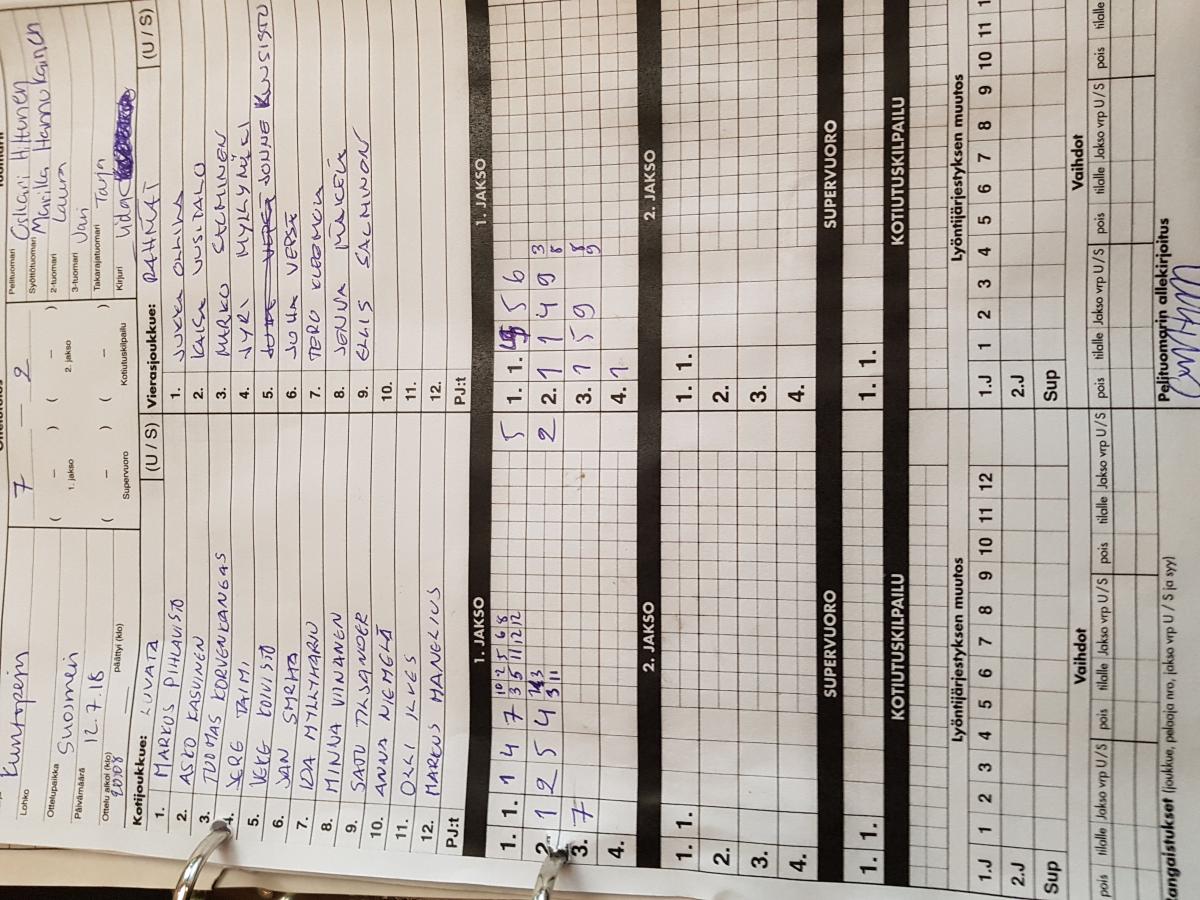 Lohko Kuntopesis
Ottelupaikka Suomen
Päivämäärä 12.7.18
Ottelu alkoi (klo) päättyi (klo)
7 – 2
( – ) ( – )
1. jakso 2. jakso
( – ) ( – )
Supervuoro Kotiutuskilpailu
Pelituomari Oskari Hiltunen
Syöttötuomari Marilla Hannukainen
2-tuomari Laura
3-tuomari Jari
Takarajatuomari Tarja
Kirjuri Iida
Kotijoukkue: LUVATA (U / S)
1. MARKUS PIHLAVISTO
2. ASKO KASVINEN
3. TUOMAS KORVENKANGAS
4. JERE TAIMI
5. VEKE KOIVISTO
6. JAN SMRHA
7. IDA MYLLYHARJU
8. MINNA VIINANEN
9. SATU TILSANDER
10. ANNA NIEMELÄ
11. OLLI ILVES
12. MARKUS MANELIUS
PJ:t
Vierasjoukkue: RAHNAT (U / S)
1. JUKKA OLLILA
2. KAISA UUSITALO
3. MARKO SALMINEN
4. JYRI MYLLYMÄKI
5. JONNE KUUSISTO
6. JUHA VERSÄ
7. TERO KLEEMOLA
8. JENNA MÄKELÄ
9. ELLIS SALMINON
10.
11.
12.
PJ:t
1. JAKSO 1. JAKSO
1. 1. 1 4 7 10 2 5 6 8 3 5 11 12 12 5
2. 1 2 5 4 3 11 2
3. 7
4.
1. 1. 5 6
2. 1 1 4 9 3 8
3. 1 5 9 8 9
4. 1
2. JAKSO 2. JAKSO
1. 1. 1. 1.
2. 2.
3. 3.
4. 4.
SUPERVUORO SUPERVUORO
1. 1. 1. 1.
KOTIUTUSKILPAILU KOTIUTUSKILPAILU
Lyöntijärjestyksen muutos Lyöntijärjestyksen muutos
1.J 1 2 3 4 5 6 7 8 9 10 11 12 1.J 1 2 3 4 5 6 7 8 9 10 11
2.J 2.J
Sup Sup
Vaihdot Vaihdot
pois tilalle Jakso vrp U / S pois tilalle Jakso vrp U / S pois tilalle Jakso vrp U / S
pois tilalle Jakso vrp U / S pois tilalle Jakso vrp U / S pois tilalle
Rangaistukset (joukkue, pelaaja nro, jakso vrp U / S ja syy)
Pelituomarin allekirjoitus